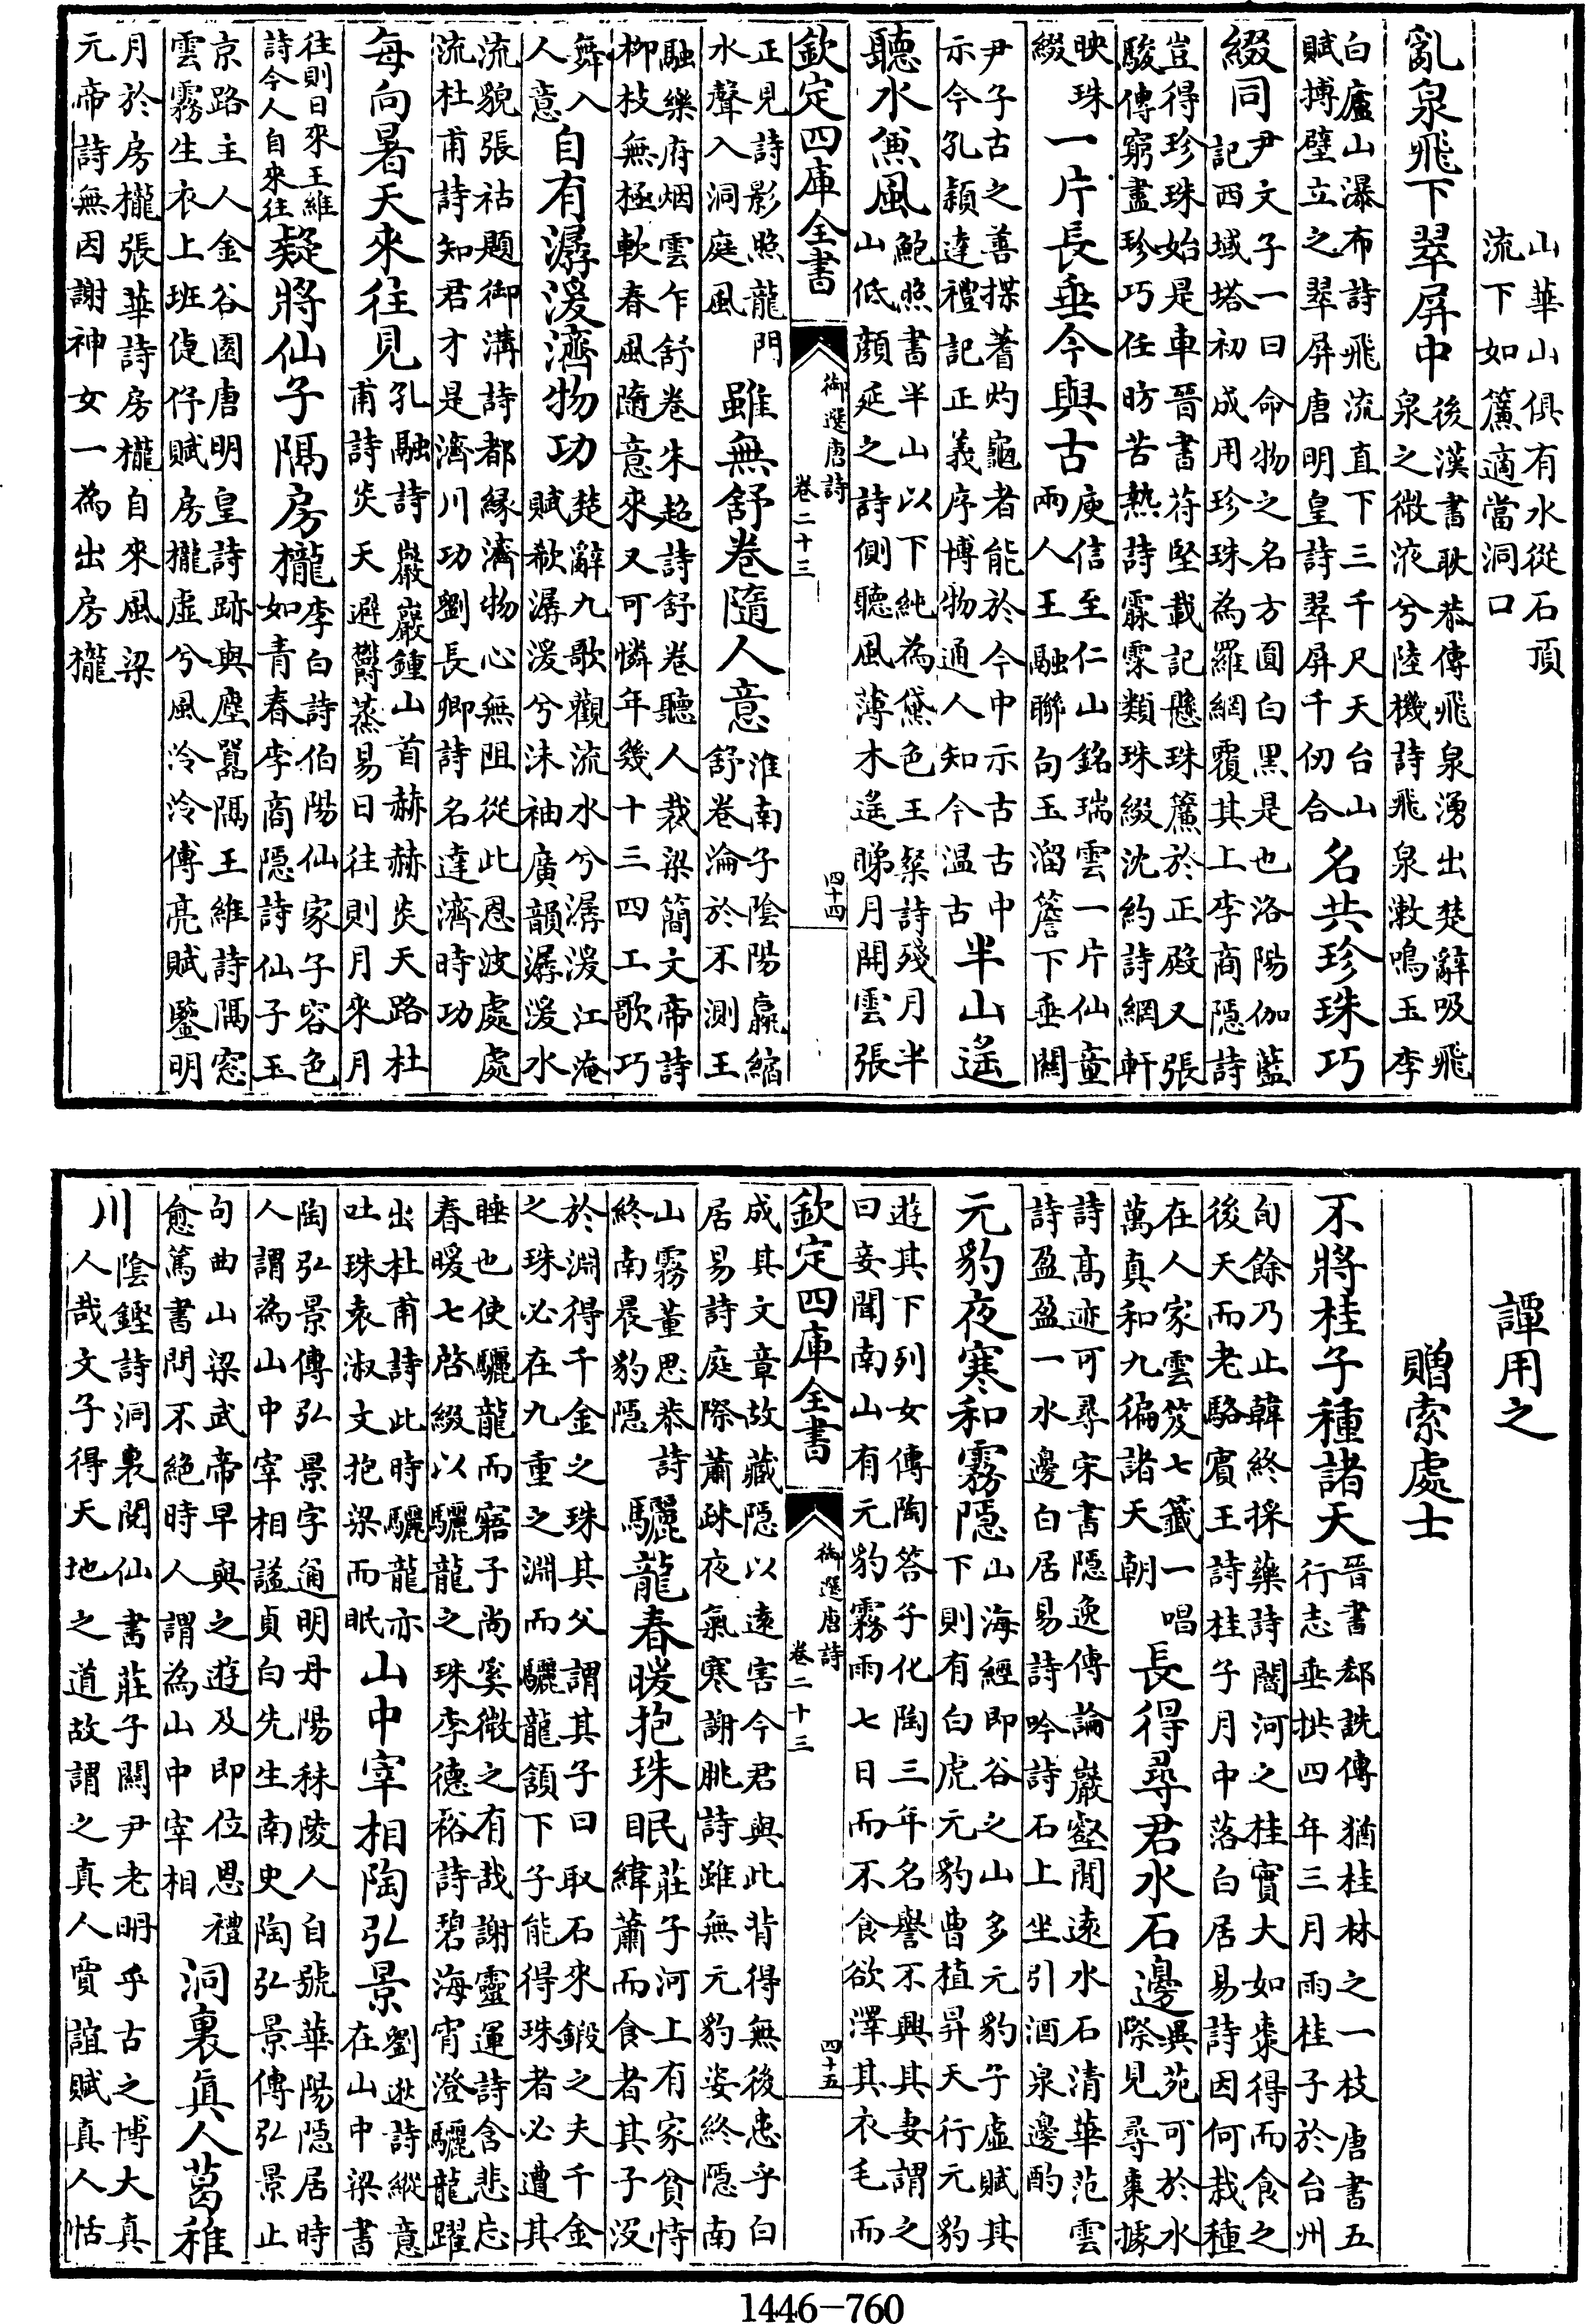 山華山俱有水從石頂
流下如簾適當洞口
亂泉飛下翠屏中
後漢書耿恭傳飛泉湧出楚辭吸飛
泉之微液兮陸機詩飛泉漱鳴玉李
白廬山瀑布詩飛流直下三千尺天台山
賦搏壁立之翠屏唐明皇詩翠屏千仞合
名共珍珠巧
綴同
尹文子一曰命物之名方圓白黑是也洛陽伽藍
記西域塔初成用珍珠為羅網覆其上李商隱詩
豈得珍珠始是車晉書苻堅載記懸珠簾於正殿又張
駿傳窮盡珍巧任昉苦熱詩霖霂類珠綴沈約詩網軒
映珠
綴
一片長垂今與古
庾信至仁山銘瑞雲一片仙童
兩人王融聯句玉溜簷下垂關
尹子古之善揲蓍灼龜者能於今中示古古中
示今孔穎達禮記正義序博物通人知今溫古
半山遙
聽水兼風
鮑照書半山以下純為黛色王粲詩殘月半
山低顏延之詩側聽風薄木遙睇月開雲張
欽定四庫全書
御選唐詩
卷二十三
四十四
正見詩影照龍門
水聲入洞庭風
雖無舒卷隨人意
淮南子陰陽贏縮
舒卷淪於不測王
融樂府烟雲乍舒卷朱超詩舒卷聽人裁梁簡文帝詩
柳枝無極軟春風隨意來又可憐年幾十三四工歌巧
舞入
人意
自有潺湲濟物功
楚辭九歌觀流水兮潺湲江淹
賦欷潺湲兮沫袖廣韻潺湲水
流貌張祜題御溝詩都緣濟物心無阻從此恩波處處
流杜甫詩知君才是濟川功劉長卿詩名達濟時功
每向暑天來往見
孔融詩巖巖鍾山首赫赫炎天路杜
甫詩炎天避鬱蒸易日往則月來月
往則日來王維
詩今人自來往
疑將仙子隔房櫳
李白詩伯陽仙家子容色
如青春李商隱詩仙子玉
京路主人金谷園唐明皇詩跡與塵囂隔王維詩隔窓
雲霧生衣上班倢伃賦房櫳虛兮風泠泠傅亮賦鑒明
月於房櫳張華詩房櫳自來風梁
元帝詩無因謝神女一為出房櫳
譚用之
贈索處士
不將桂子種諸天
晉書郄詵傳猶桂林之一枝唐書五
行志垂拱四年三月雨桂子於台州
旬餘乃止韓終採藥詩闇河之桂實大如棗得而食之
後天而老駱賓王詩桂子月中落白居易詩因何栽種
在人家雲笈七籤一唱
萬真和九徧諸天朝
長得尋君水石邊
異苑可於水
際見尋棗據
詩高迹可尋宋書隱逸傳論巖壑閒遠水石清華范雲
詩盈盈一水邊白居易詩吟詩石上坐引酒泉邊酌
元豹夜寒和霧隱
山海經即谷之山多元豹子虛賦其
下則有白虎元豹曹植昇天行元豹
遊其下列女傳陶答子化陶三年名譽不興其妻謂之
曰妾聞南山有元豹霧雨七日而不食欲澤其衣毛而
欽定四庫全書
御選唐詩
卷二十三
四十五
成其文章故藏隱以遠害今君與此背得無後患乎白
居易詩庭際蕭疎夜氣寒謝朓詩雖無元豹姿終隱南
山霧董思恭詩
終南晨豹隱
驪龍春暖抱珠眠
莊子河上有家貧恃
緯蕭而食者其子沒
於淵得千金之珠其父謂其子曰取石來鍛之夫千金
之珠必在九重之淵而驪龍頷下子能得珠者必遭其
睡也使驪龍而寤子尚奚微之有哉謝靈運詩含悲忘
春暖七啓綴以驪龍之珠李德裕詩碧海宵澄驪龍躍
出杜甫詩此時驪龍亦
吐珠袁淑文抱梁而眠
山中宰相陶弘景
劉遬詩縱意
在山中梁書
陶弘景傳弘景字通明丹陽秣陵人自號華陽隱居時
人謂為山中宰相諡貞白先生南史陶弘景傳弘景止
句曲山梁武帝早與之遊及即位恩禮
愈篤書問不絕時人謂為山中宰相
洞裏真人葛稚
川
陰鏗詩洞裏閱仙書莊子關尹老明乎古之博大真
人哉文子得天地之道故謂之真人賈誼賦真人恬
1446-760